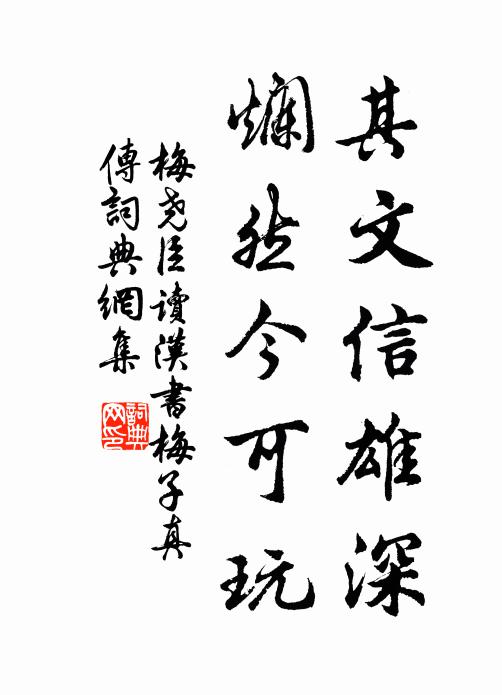 其文信雄深
爛然今可玩
梅堯臣讀漢書梅子真
傳詞典網集
詞典
网印